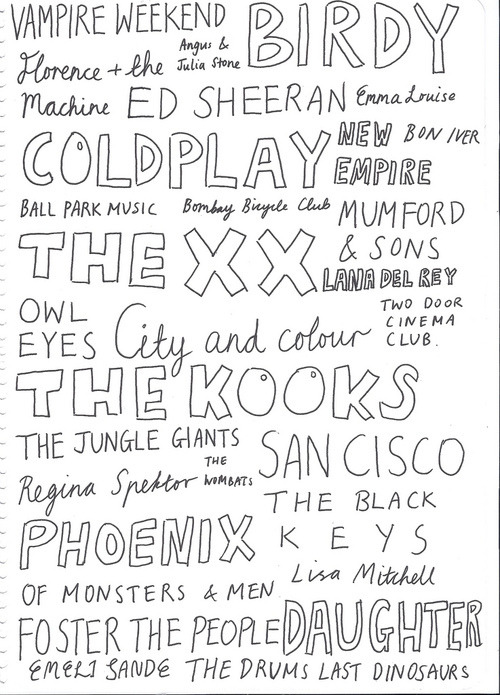 VAMPIRE WEEKEND
Angus &
Julia Stone
BIRDY
Florence + the
Machine
ED SHEERAN
Emma Louise
COLDPLAY
NEW
EMPIRE
BON IVER
BALL PARK MUSIC
Bombay Bicycle Club
MUMFORD
& SONS
THE XX
LANA DEL REY
OWL
EYES
City and colour
TWO DOOR
CINEMA
CLUB.
THE KOOKS
THE JUNGLE GIANTS
THE
WOMBATS
SAN CISCO
Regina Spektor
THE BLACK
KEYS
PHOENIX
Lisa Mitchell
OF MONSTERS & MEN
FOSTER THE PEOPLE
DAUGHTER
EMELI SANDE
THE DRUMS
LAST DINOSAURS